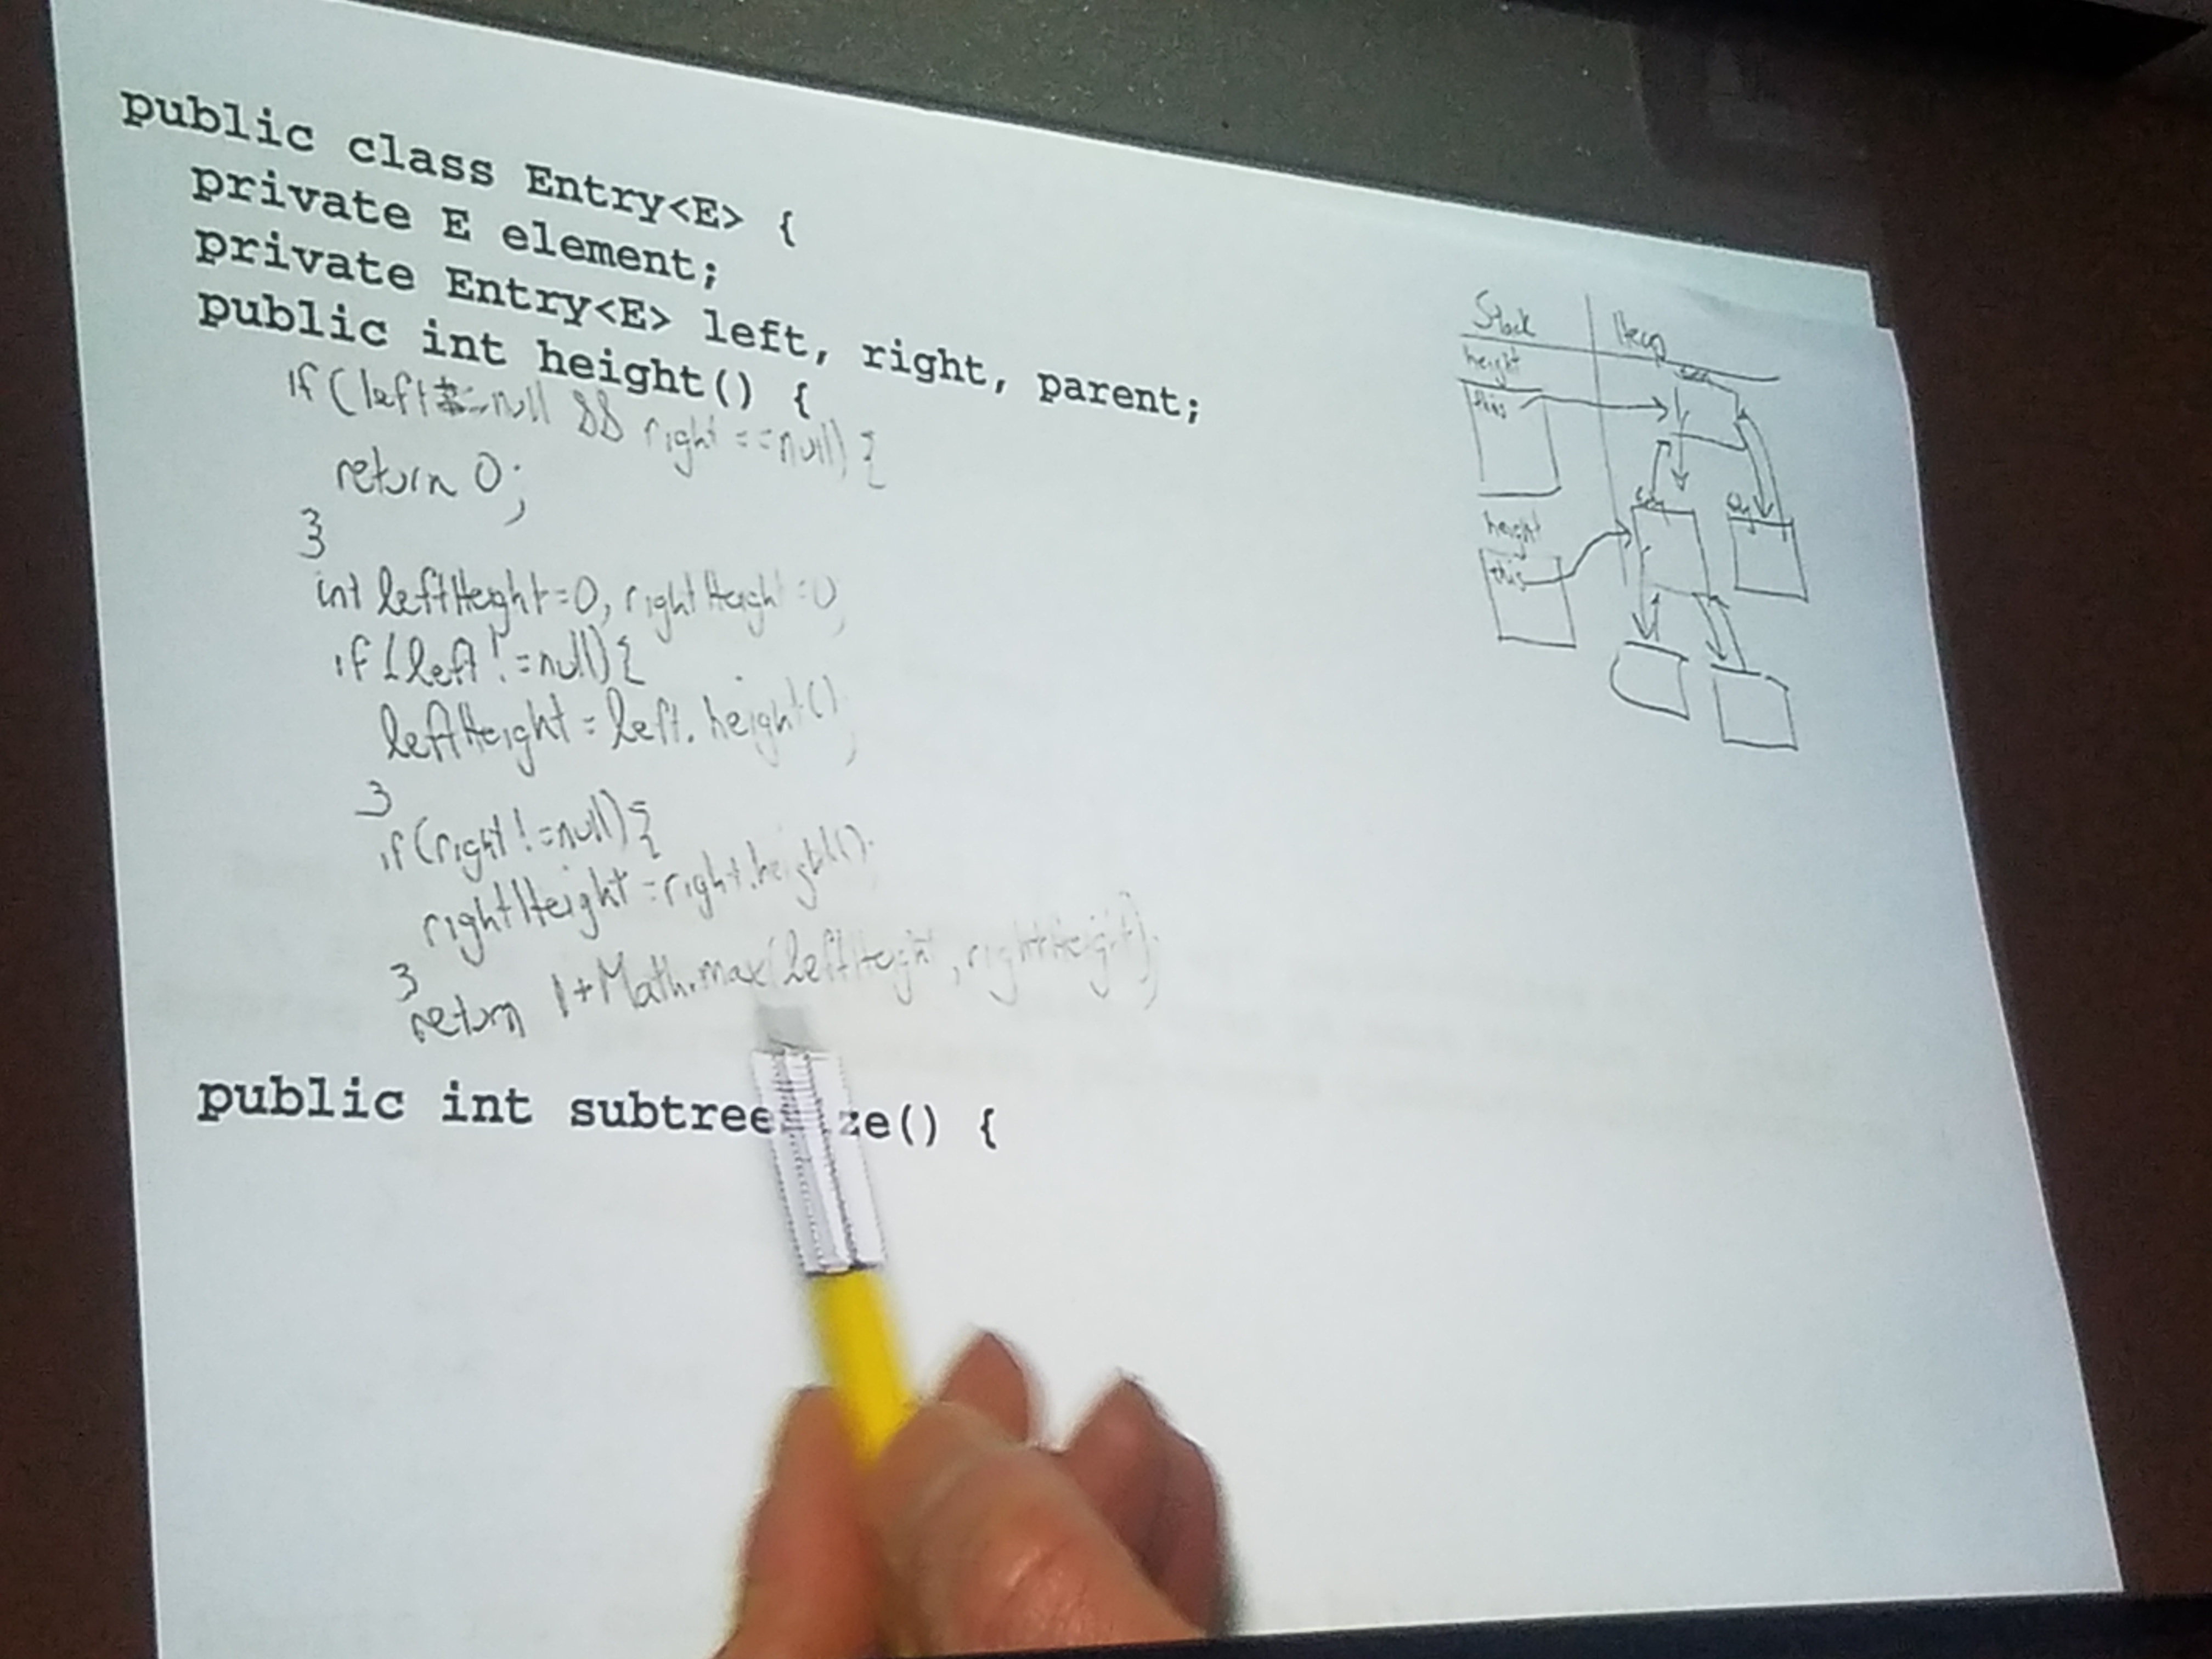 public class Entry<E> {
private E element;
private Entry<E> left, right, parent;
public int height() {
if (left == null && right == null) {
return 0;
}
int leftHeight = 0, rightHeight = 0;
if (left != null) {
leftHeight = left.height();
}
if (right != null) {
rightHeight = right.height();
}
return 1 + Math.max(leftHeight, rightHeight);
public int subtree ze() {
Stack Heap
height
this
height
this